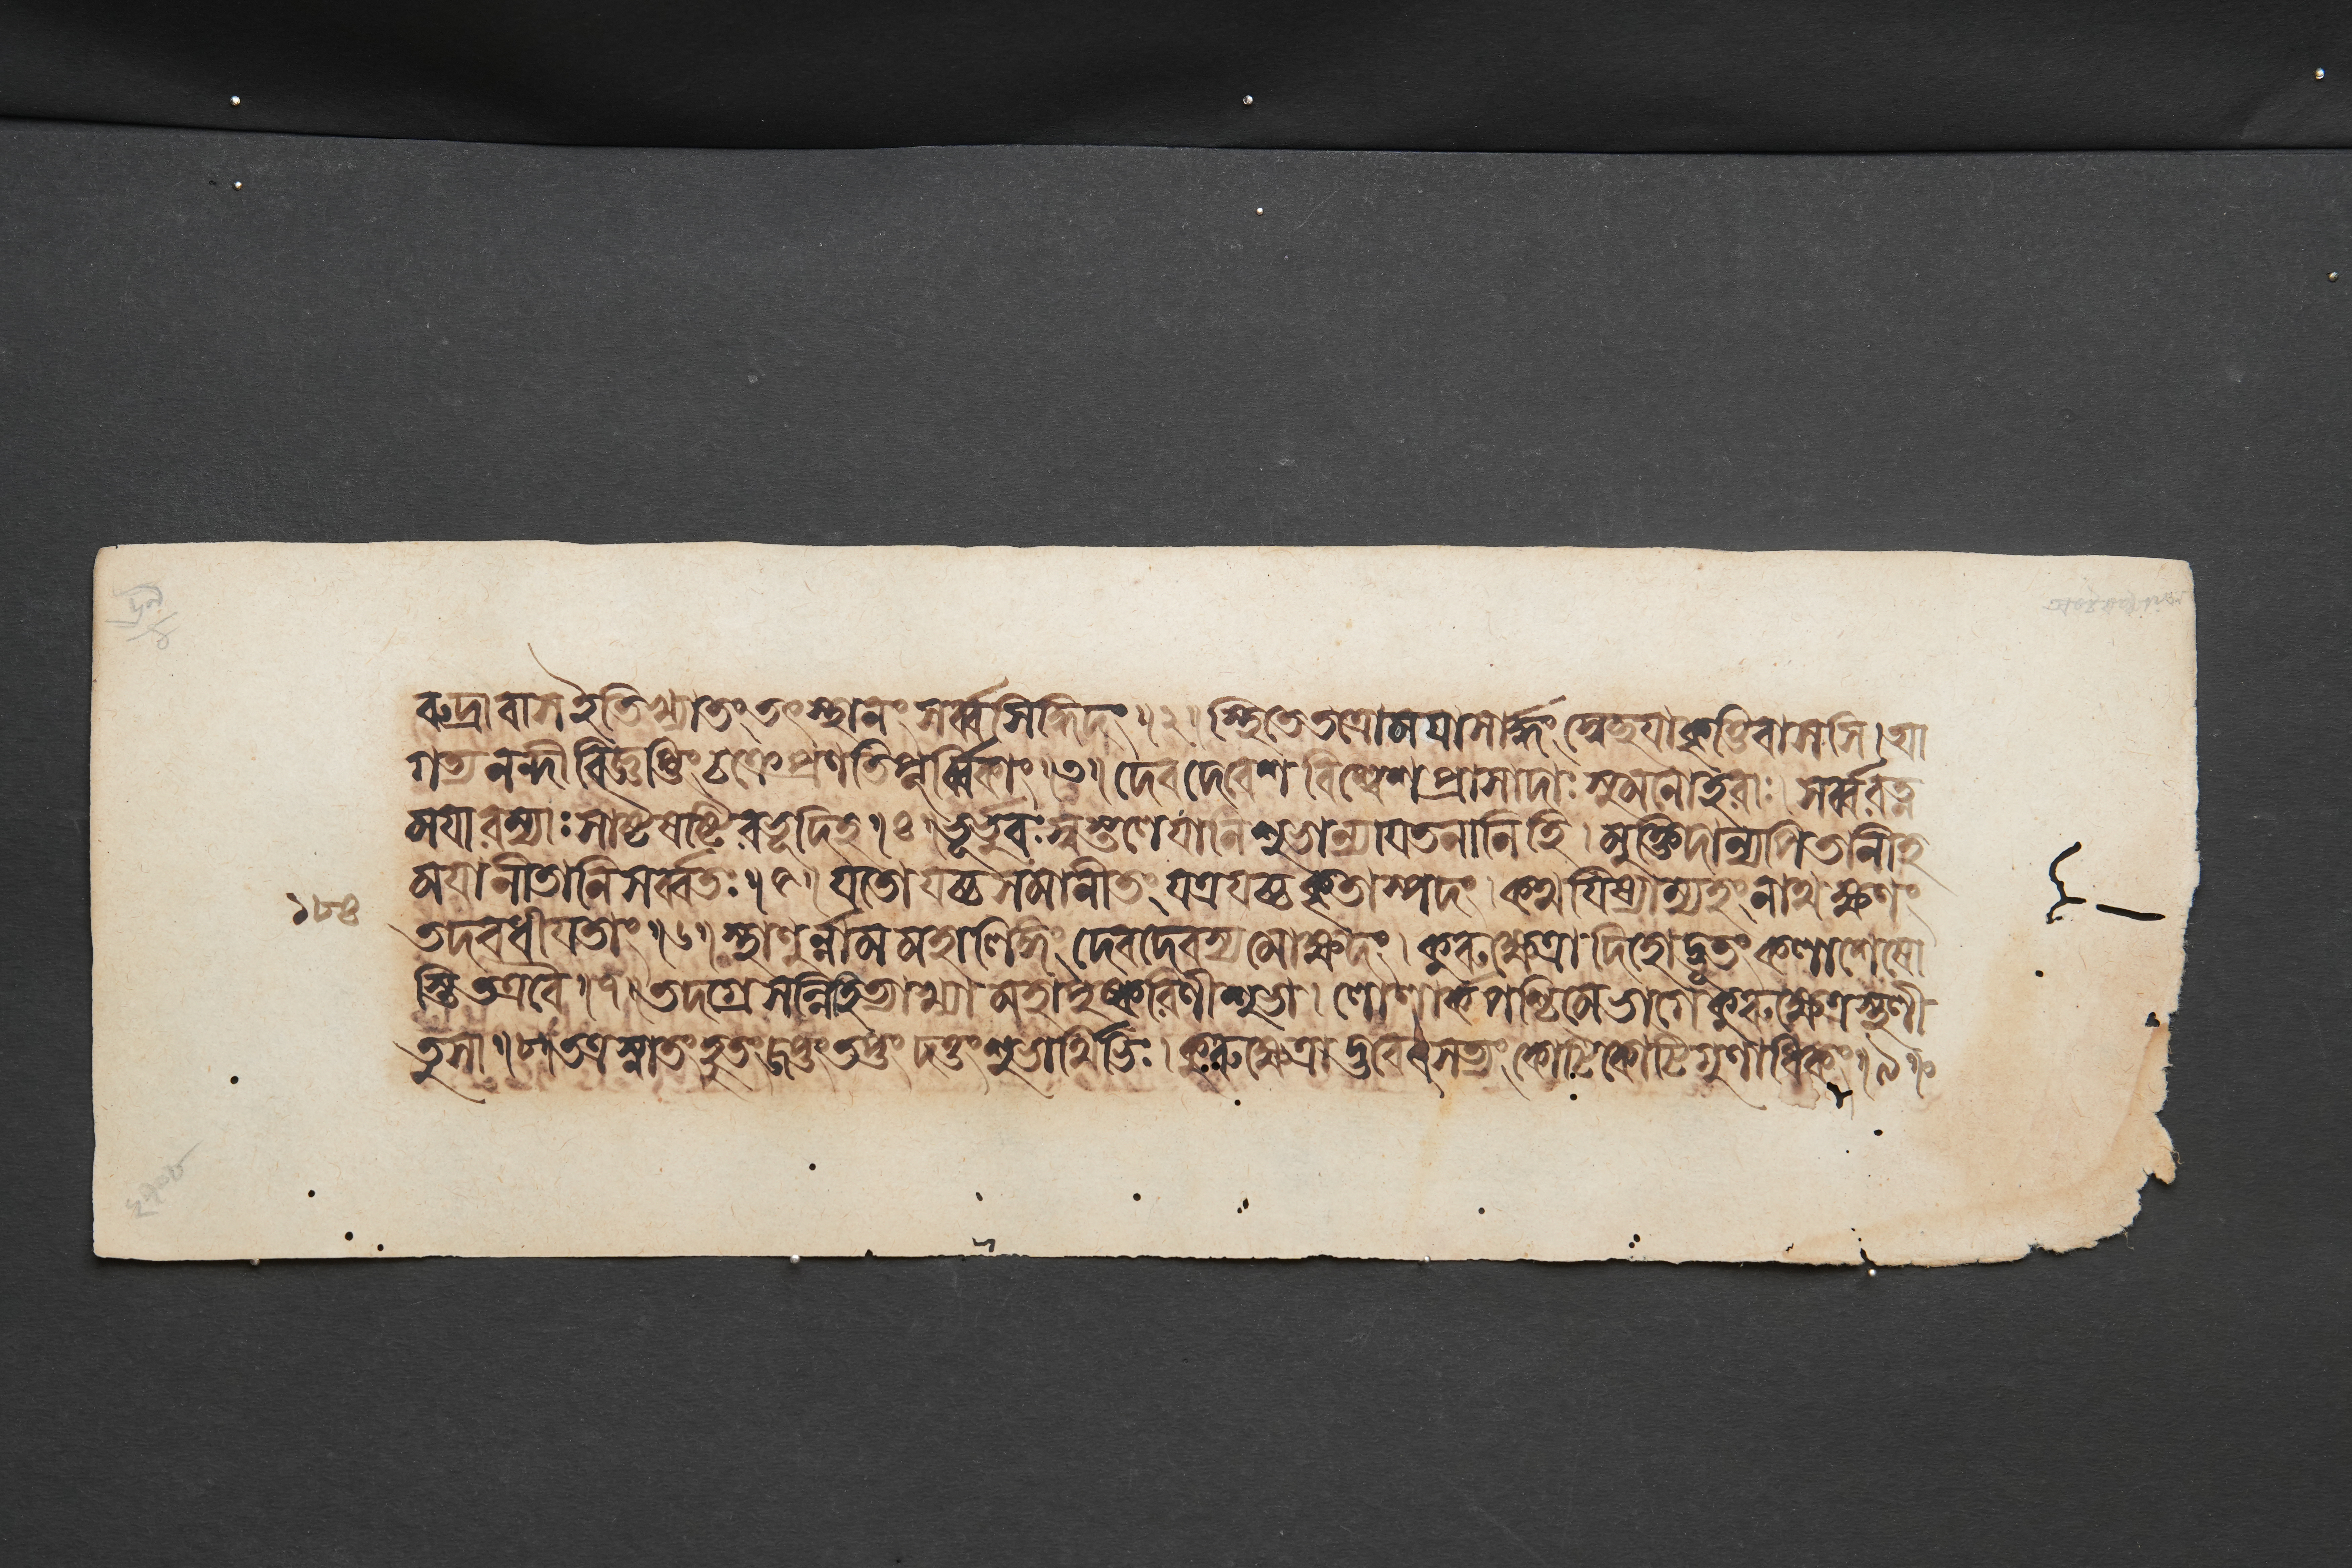 রুদ্রাবাস ইতিখ্যাতং তৎস্থানং সর্ব্বসিদ্ধিদং ॥২॥ স্থিতেতত্রোময়াসার্দ্ধং স্বেচ্ছয়াকৃত্তিবাসসি । আ
গত্য নন্দী বিজ্ঞপ্তিং চক্রে প্রণতিপূর্ব্বিকাং ॥৩॥ দেবদেবেশ বিশ্বেশ প্রাসাদাঃ সুমনোহরাঃ । সর্ব্বরত্ন
ময়ারম্যাঃ সাষ্টষষ্টিরভূদিহ ॥৪॥ ভূর্ভুবঃ স্বস্তলেযানি শুভান্যায়তনানিহি । মুক্তিদান্যপিতানীহ
ময়ানীতানি সর্ব্বতঃ ॥৫॥ যতোযচ্চ সমানীতং যত্রযচ্চ কৃতাস্পদং । কথয়িষ্যাম্যহং নাথ ক্ষণং
১৮৪
তদবধীয়তাং ॥৬॥ স্থাণুর্ন্নাম মহালিঙ্গং দেবদেবস্য মোক্ষদং । কুরুক্ষেত্রাদিহোদ্ভূতং কলাশেষো
স্তি তত্রবৈ ॥৭॥ তদগ্রে সন্নিহিত্যাখ্যা মহাপুষ্করিণীশুভা । লোলার্কপশ্চিমেভাগে কুরুক্ষেত্রস্থলী
তুসা ॥৮॥ তত্রস্নাতং হুতং জপ্তং তপ্তং দত্তং শুভার্থিভিঃ । কুরুক্ষেত্রাদ্ভবেৎসত্যং কোটিকোটিগুণাধিকং ॥৯॥